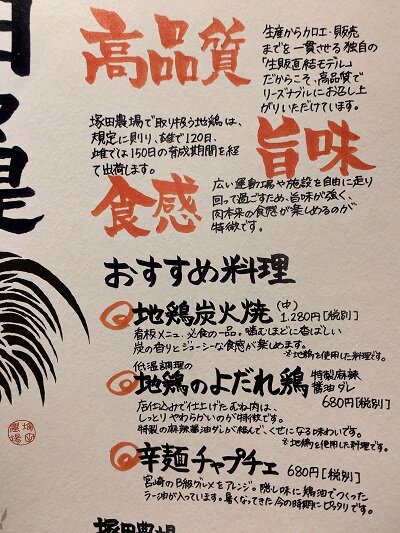 高品質
生産から加工・販売
までを一貫させる独自の
「生販直結モデル」
だからこそ、高品質で
リーズナブルにお召し上
がりいただけています。
塚田農場で取り扱う地鶏は、
規定に則り、雄で120日、
雌では150日の育成期間を経
て出荷します。
旨味
食感
広い運動場や施設を自由に走り
回って過ごすため、旨味が強く、
肉本来の食感が楽しめるのが
特徴です。
おすすめ料理
地鶏炭火焼(中)
1.280円[税別]
看板メニュー、必食の一品。噛むほどに香ばしい
炭の香りとジューシーな食感が楽しめます。
※地鶏を使用した料理です。
低温調理の
地鶏のよだれ鶏 特製麻辣
醤油ダレ
680円[税別]
店仕込みで仕上げたむね肉は、
しっとりやわらかいのが特徴です。
特製の麻辣醤油ダレが絡んで、くせになる味わいです。
※地鶏を使用した料理です。
辛麺チャプチェ 680円[税別]
宮崎のB級グルメをアレンジ。隠し味に鶏油でつくった
ラー油が入っています。暑くなってきた今の時期にピッタリです。
塚田農場